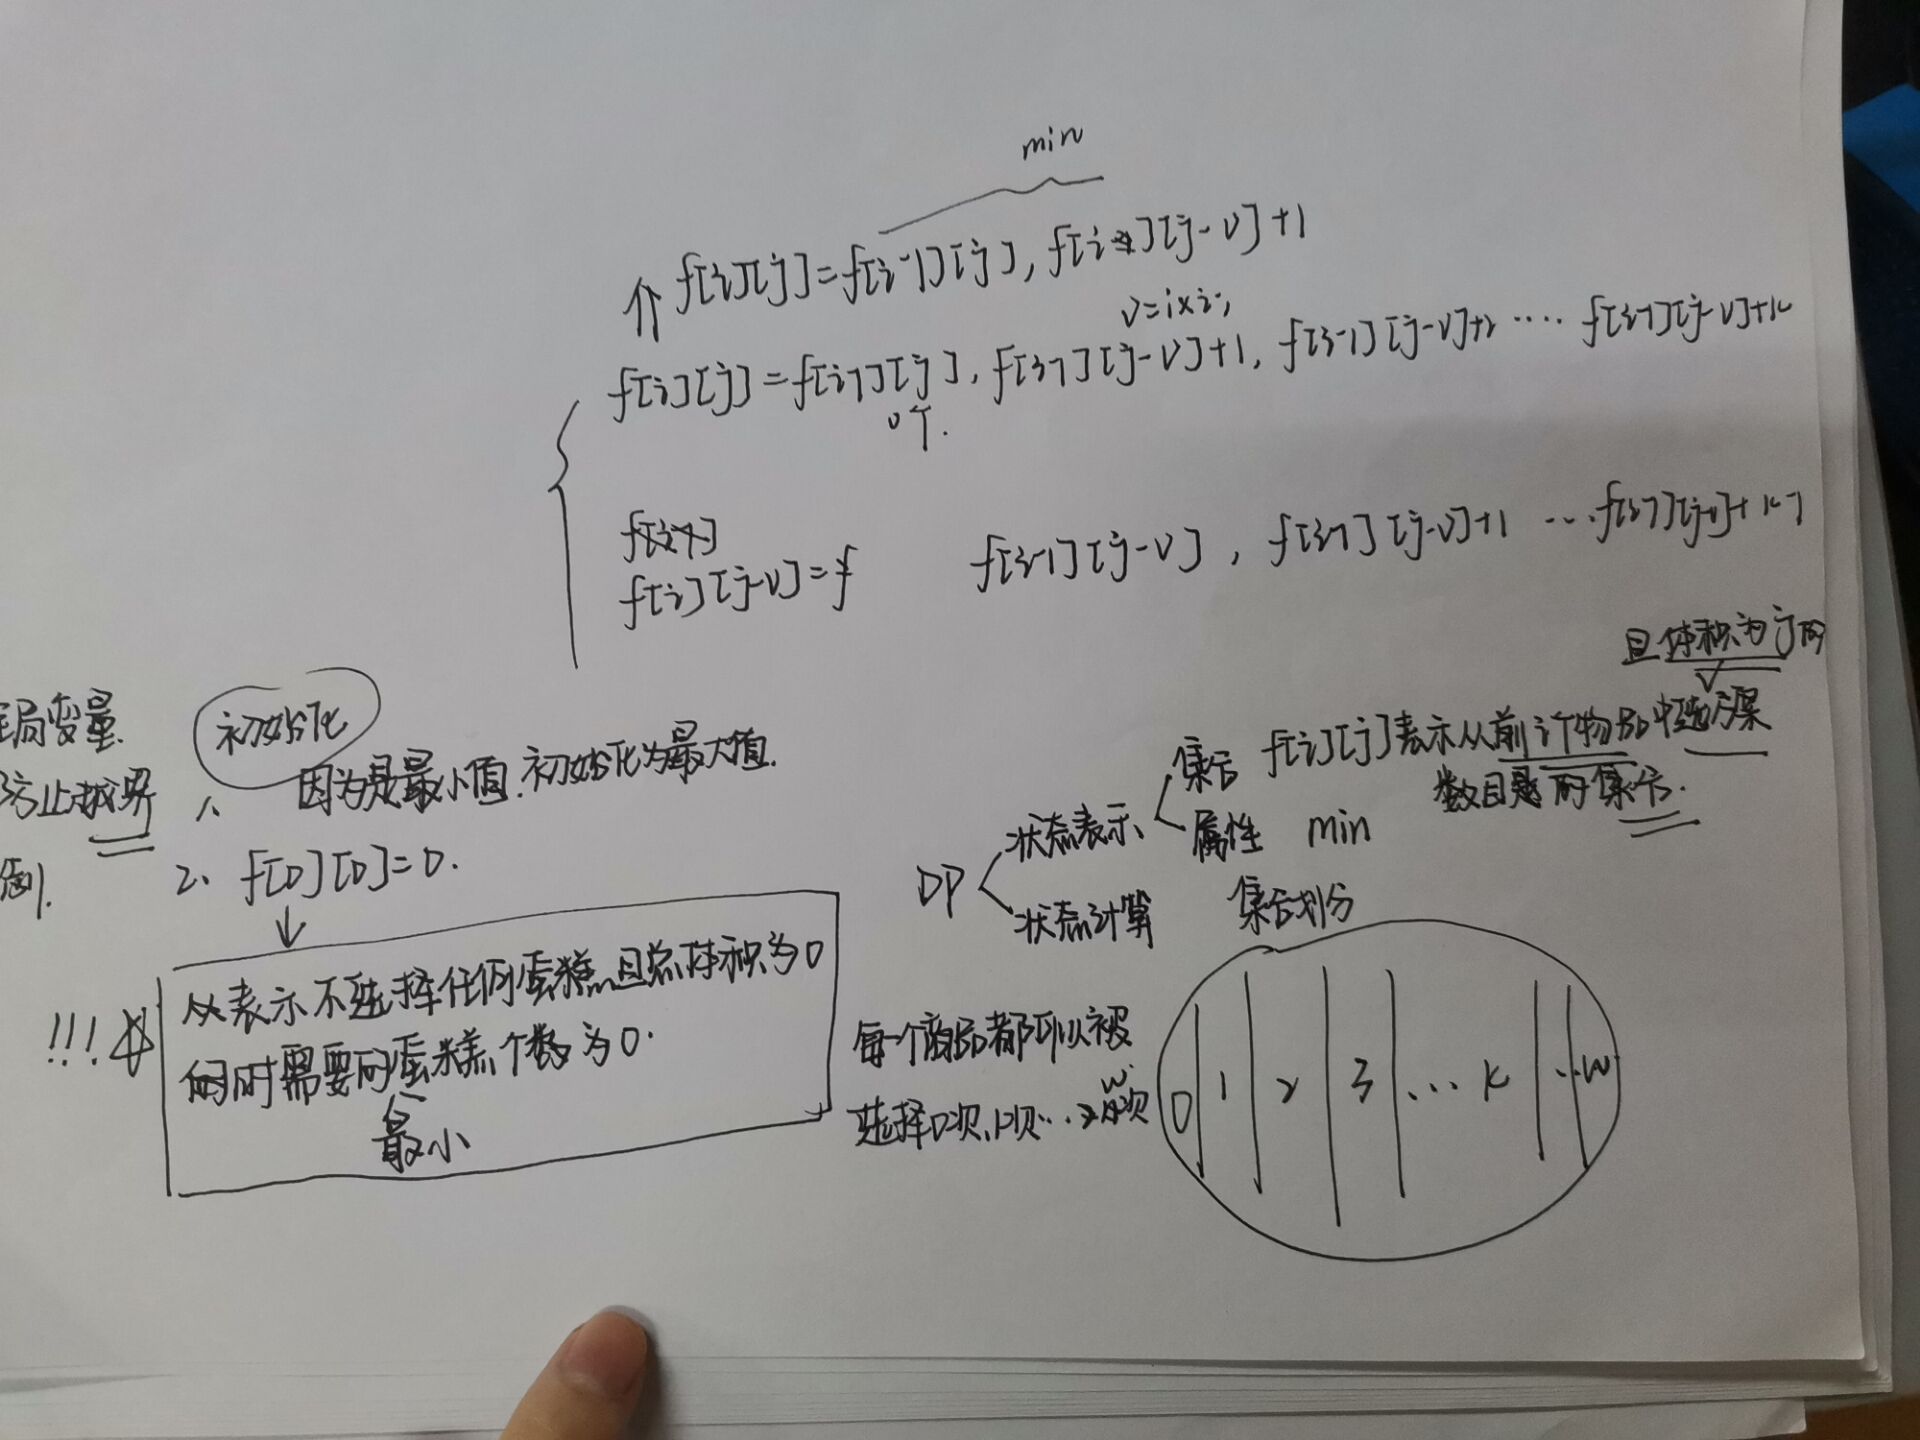 min
f[i][j]=f[i-1][j], f[i][j-v]+1
v=i×i;
f[i][j]=f[i-1][j], f[i-1][j-v]+1, f[i-1][j-v]+2 ···· f[i-1][j-v]+k
0个.
f[i][j-v]= f[i-1][j-v], f[i-1][j-v]+1 ··· f[i-1][j-v]+k-1
且体积为j的
全局变量.
初始化
防止越界
1. 因为是最小值.初始化为最大值.
例.
2. f[0][0]=0.
集合 f[i][j]表示从前i个物品中选方案
数目是的集合.
状态表示
属性 min
DP
状态计算 集合划分
!!!
从表示不选择任何蛋糕且总体积为0
的时需要的蛋糕个数为0.
最小
每一个商品都可以被
选择0次,1次··· w次
0 1 2 3 ··· k ··w